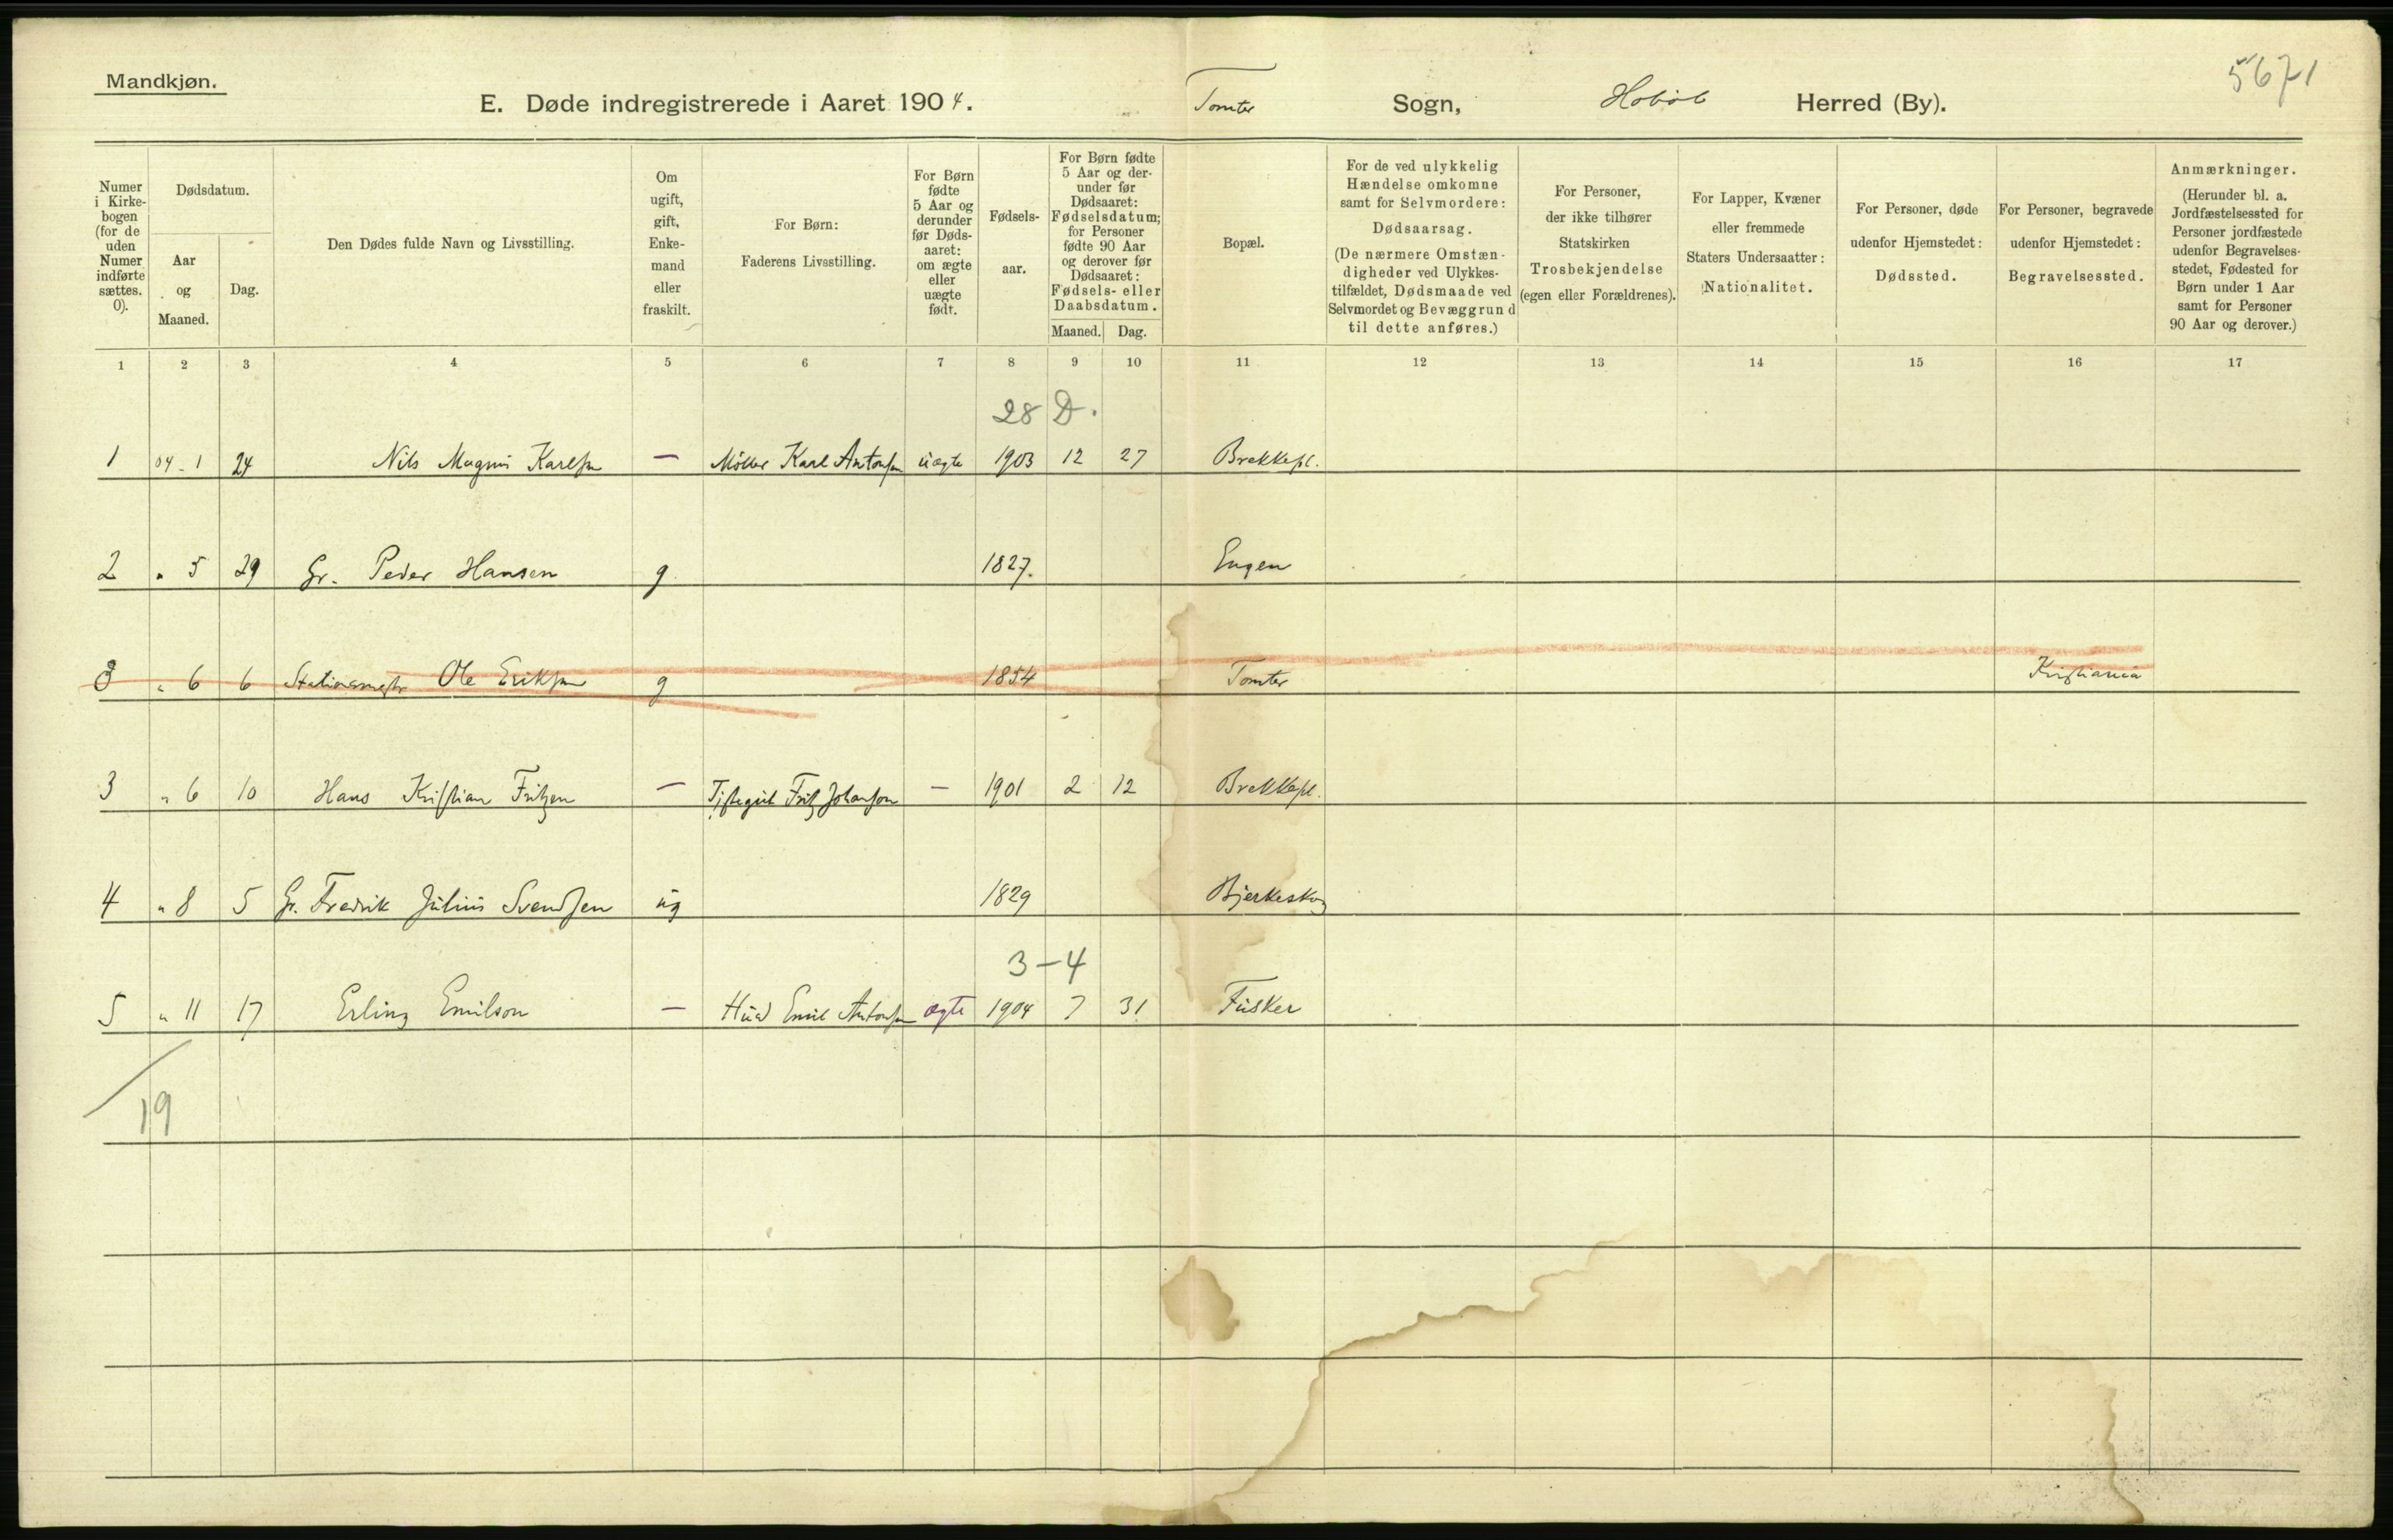 Mandkjøn.
5671
E. Døde indregistrerede i Aaret 1904. Tomter Sogn, Hobøl Herred (By).
Numer i Kirke-bogen (for de uden Numer indførte sættes. 0).
Dødsdatum.
Aar og Maaned.
Dag.
Den Dødes fulde Navn og Livsstilling.
Om ugift, gift, Enke-mand eller fraskilt.
For Børn: Faderens Livsstilling.
For Børn fødte 5 Aar og derunder før Døds-aaret: om ægte eller uægte født.
Fødsels-aar.
For Børn fødte 5 Aar og der-under før Dødsaaret: Fødselsdatum; for Personer fødte 90 Aar og derover før Dødsaaret: Fødsels- eller Daabsdatum.
Maaned. Dag.
Bopæl.
For de ved ulykkelig Hændelse omkomne samt for Selvmordere: Dødsaarsag. (De nærmere Omstæn-digheder ved Ulykkes-tilfældet, Dødsmaade ved Selvmordet og Bevæggrund til dette anføres.)
For Personer, der ikke tilhører Statskirken Trosbekjendelse (egen eller Forældrenes).
For Lapper, Kvæner eller fremmede Staters Undersaatter: Nationalitet.
For Personer, døde udenfor Hjemstedet: Dødssted.
For Personer, begravede udenfor Hjemstedet: Begravelsessted.
Anmærkninger. (Herunder bl. a. Jordfæstelsessted for Personer jordfæstede udenfor Begravelses-stedet, Fødested for Børn under 1 Aar samt for Personer 90 Aar og derover.)
1 2 3 4 5 6 7 8 9 10 11 12 13 14 15 16 17
28 D.
1 04-1 24 Nils Magnus Karlsen — Møller Karl Antonsen uægte 1903 12 27 Brekkepl.
2 " 5 29 Gr. Peder Hansen g 1827. Engen
3 " 6 6 Stationsmester Ole Eriksen g 1854 Tomter Kristiania
3 " 6 10 Hans Kristian Fritzen — Fritz Johansen — 1901 2 12 Brekkepl.
4 " 8 5 Gr. Fredrik Julius Svendsen ug 1829 Bjerkeskog
3-4
5 " 11 17 Erling Emilson — Husd Emil Antonsen ægte 1904 7 31 Fusker
19